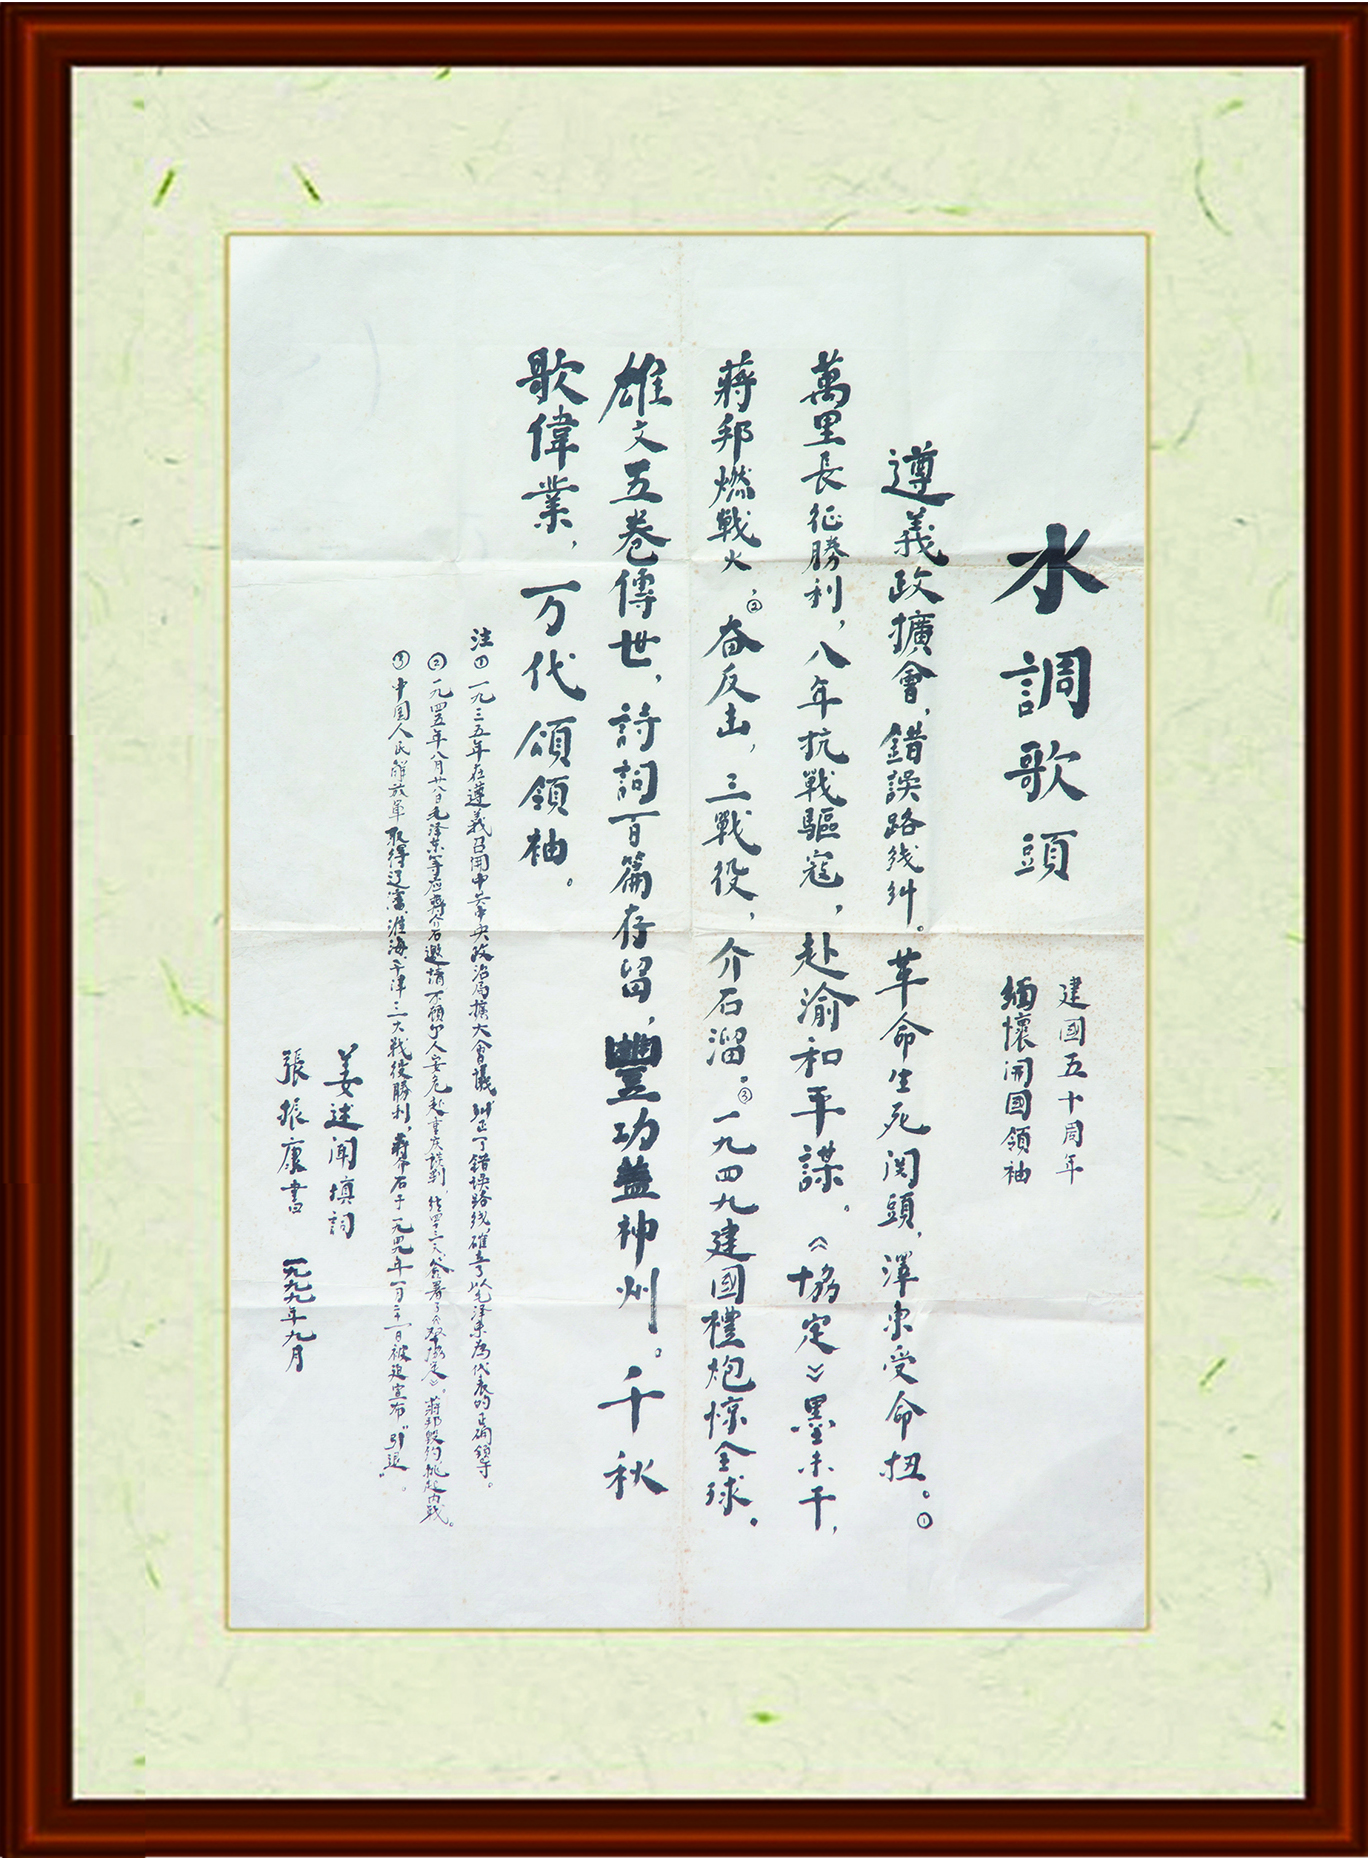 水調歌頭
建國五十周年
緬懷開國領袖
遵義政擴會，錯誤路线糾。革命生死関頭，澤東受命扭。①
萬里長征勝利，八年抗戰驅寇，赴渝和平謀。《協定》墨未干，
蔣邦燃戰火，②奋反击，三戰役，介石溜。③一九四九建國禮炮惊全球。
雄文五卷傳世，詩詞百篇存留，豐功蓋神州。千秋
歌偉業，万代頌領袖。
注①一九三五年在遵義召開中共中央政治局擴大會議，糾正了錯误路线，確立了以毛泽东為代表的正确領导。
②一九四五年八月廿八日毛泽东等应蔣介石邀請不顧个人安危赴重庆談判，经四十三天簽署了《双十協定》。蔣邦毀约挑起内战。
③中国人民解放軍取得辽瀋、淮海、平津三大戰役勝利，蔣介石于一九四九年一月二十一日被迫宣布"引退"。
姜述闻填詞
張振康書 一九九九年九月